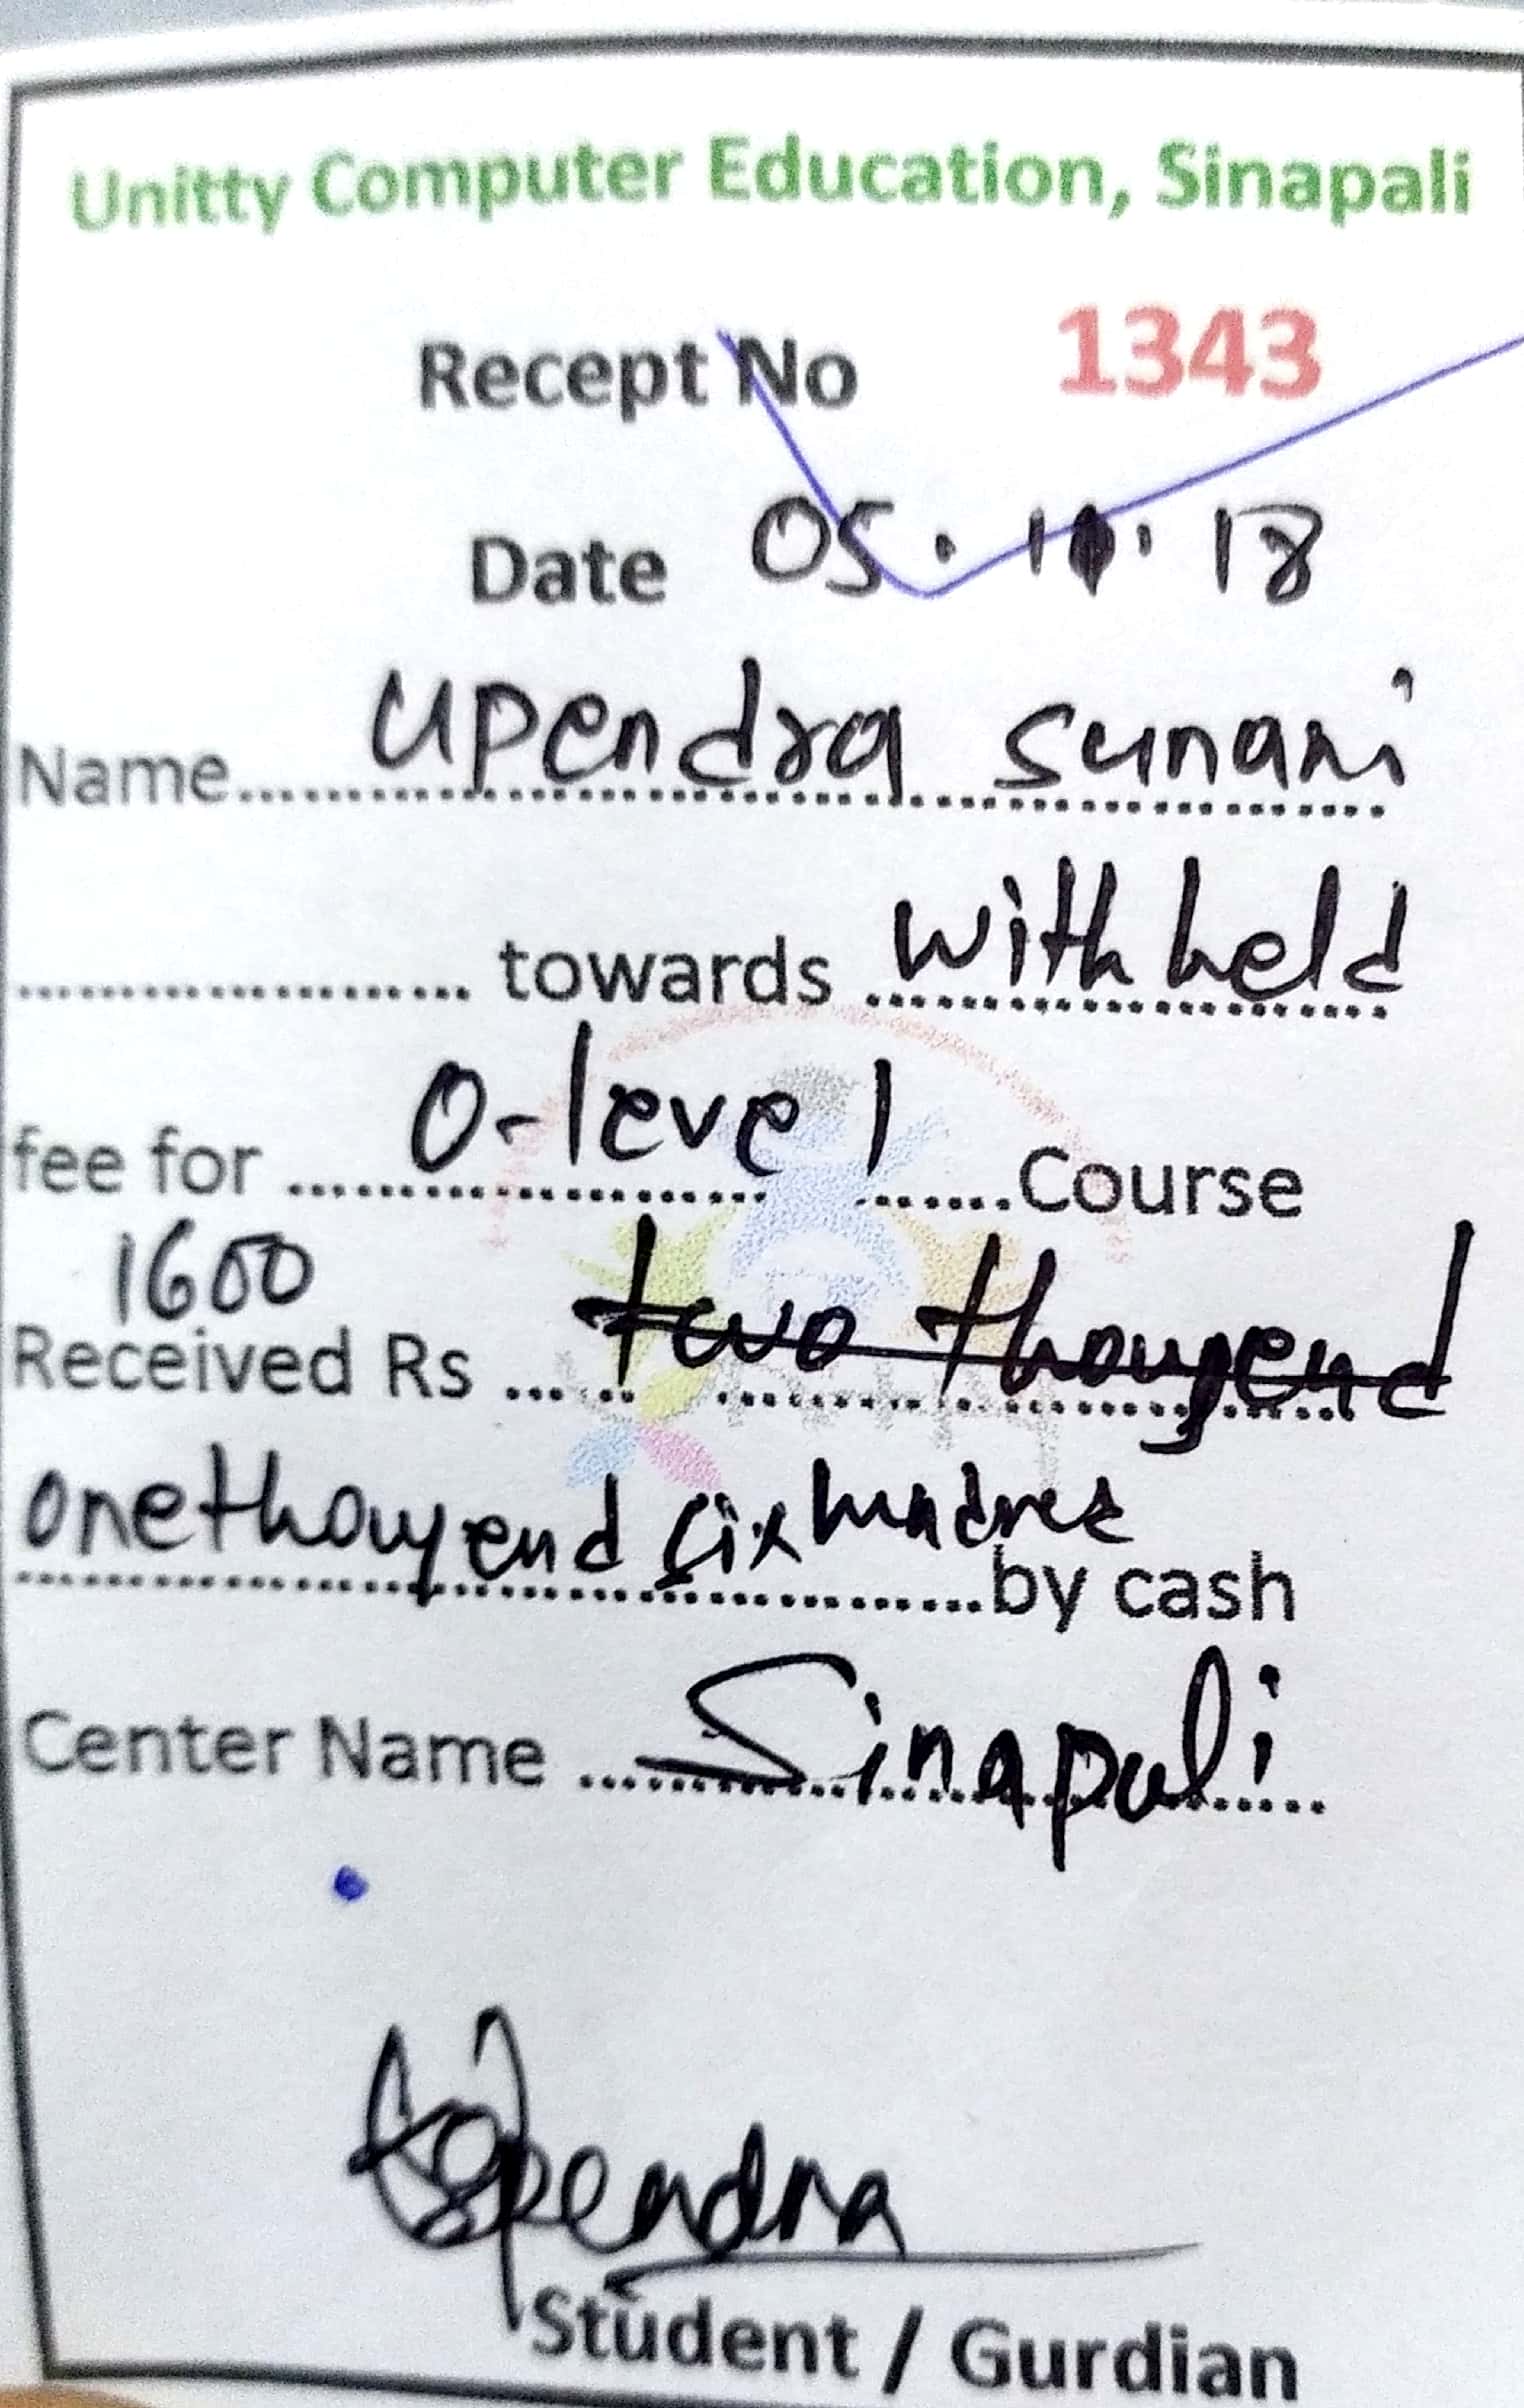 Unitty Computer Education, Sinapali
Recept No 1343
Date 05. 11. 18
Name.......... Upendra sunani
.......... towards withheld
fee for .......... O-level ..........Course
1600
Received Rs .......... two thousend
onethousend six hundred ..........by cash
Center Name .......... Sinapali
Upendra
Student / Gurdian